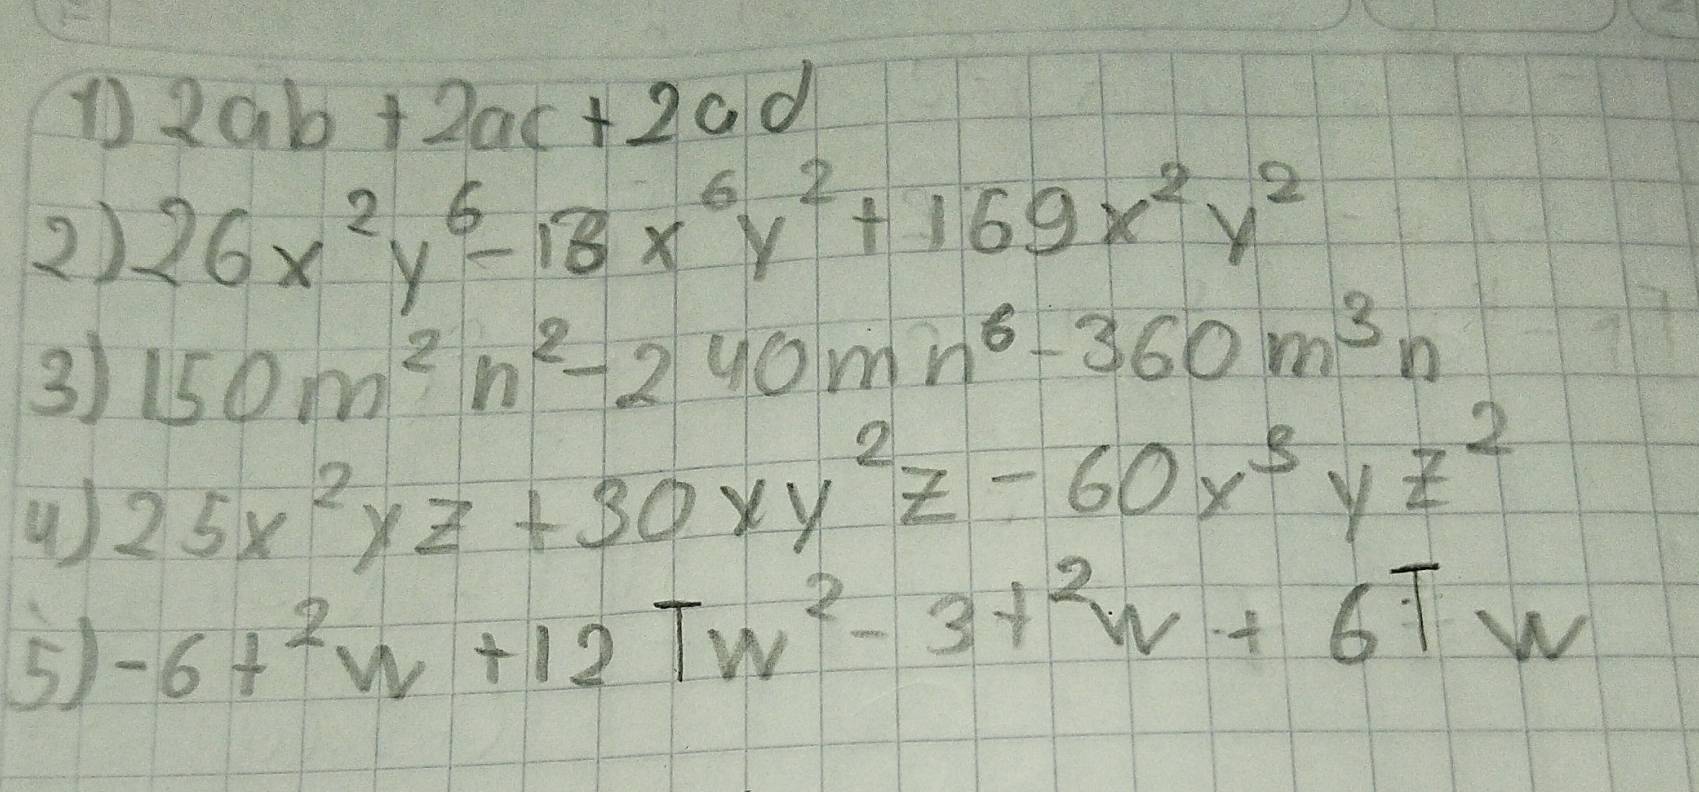 1) 2ab + 2ac + 2ad
2) 26x²y⁶ - 13x⁶y² + 169x²y²
3) 150m²n² - 240mn⁶ - 360m³n
4) 25x²yz + 30xy²z - 60x³yz²
5) -6t²w + 12Tw² - 3t²w + 6Tw